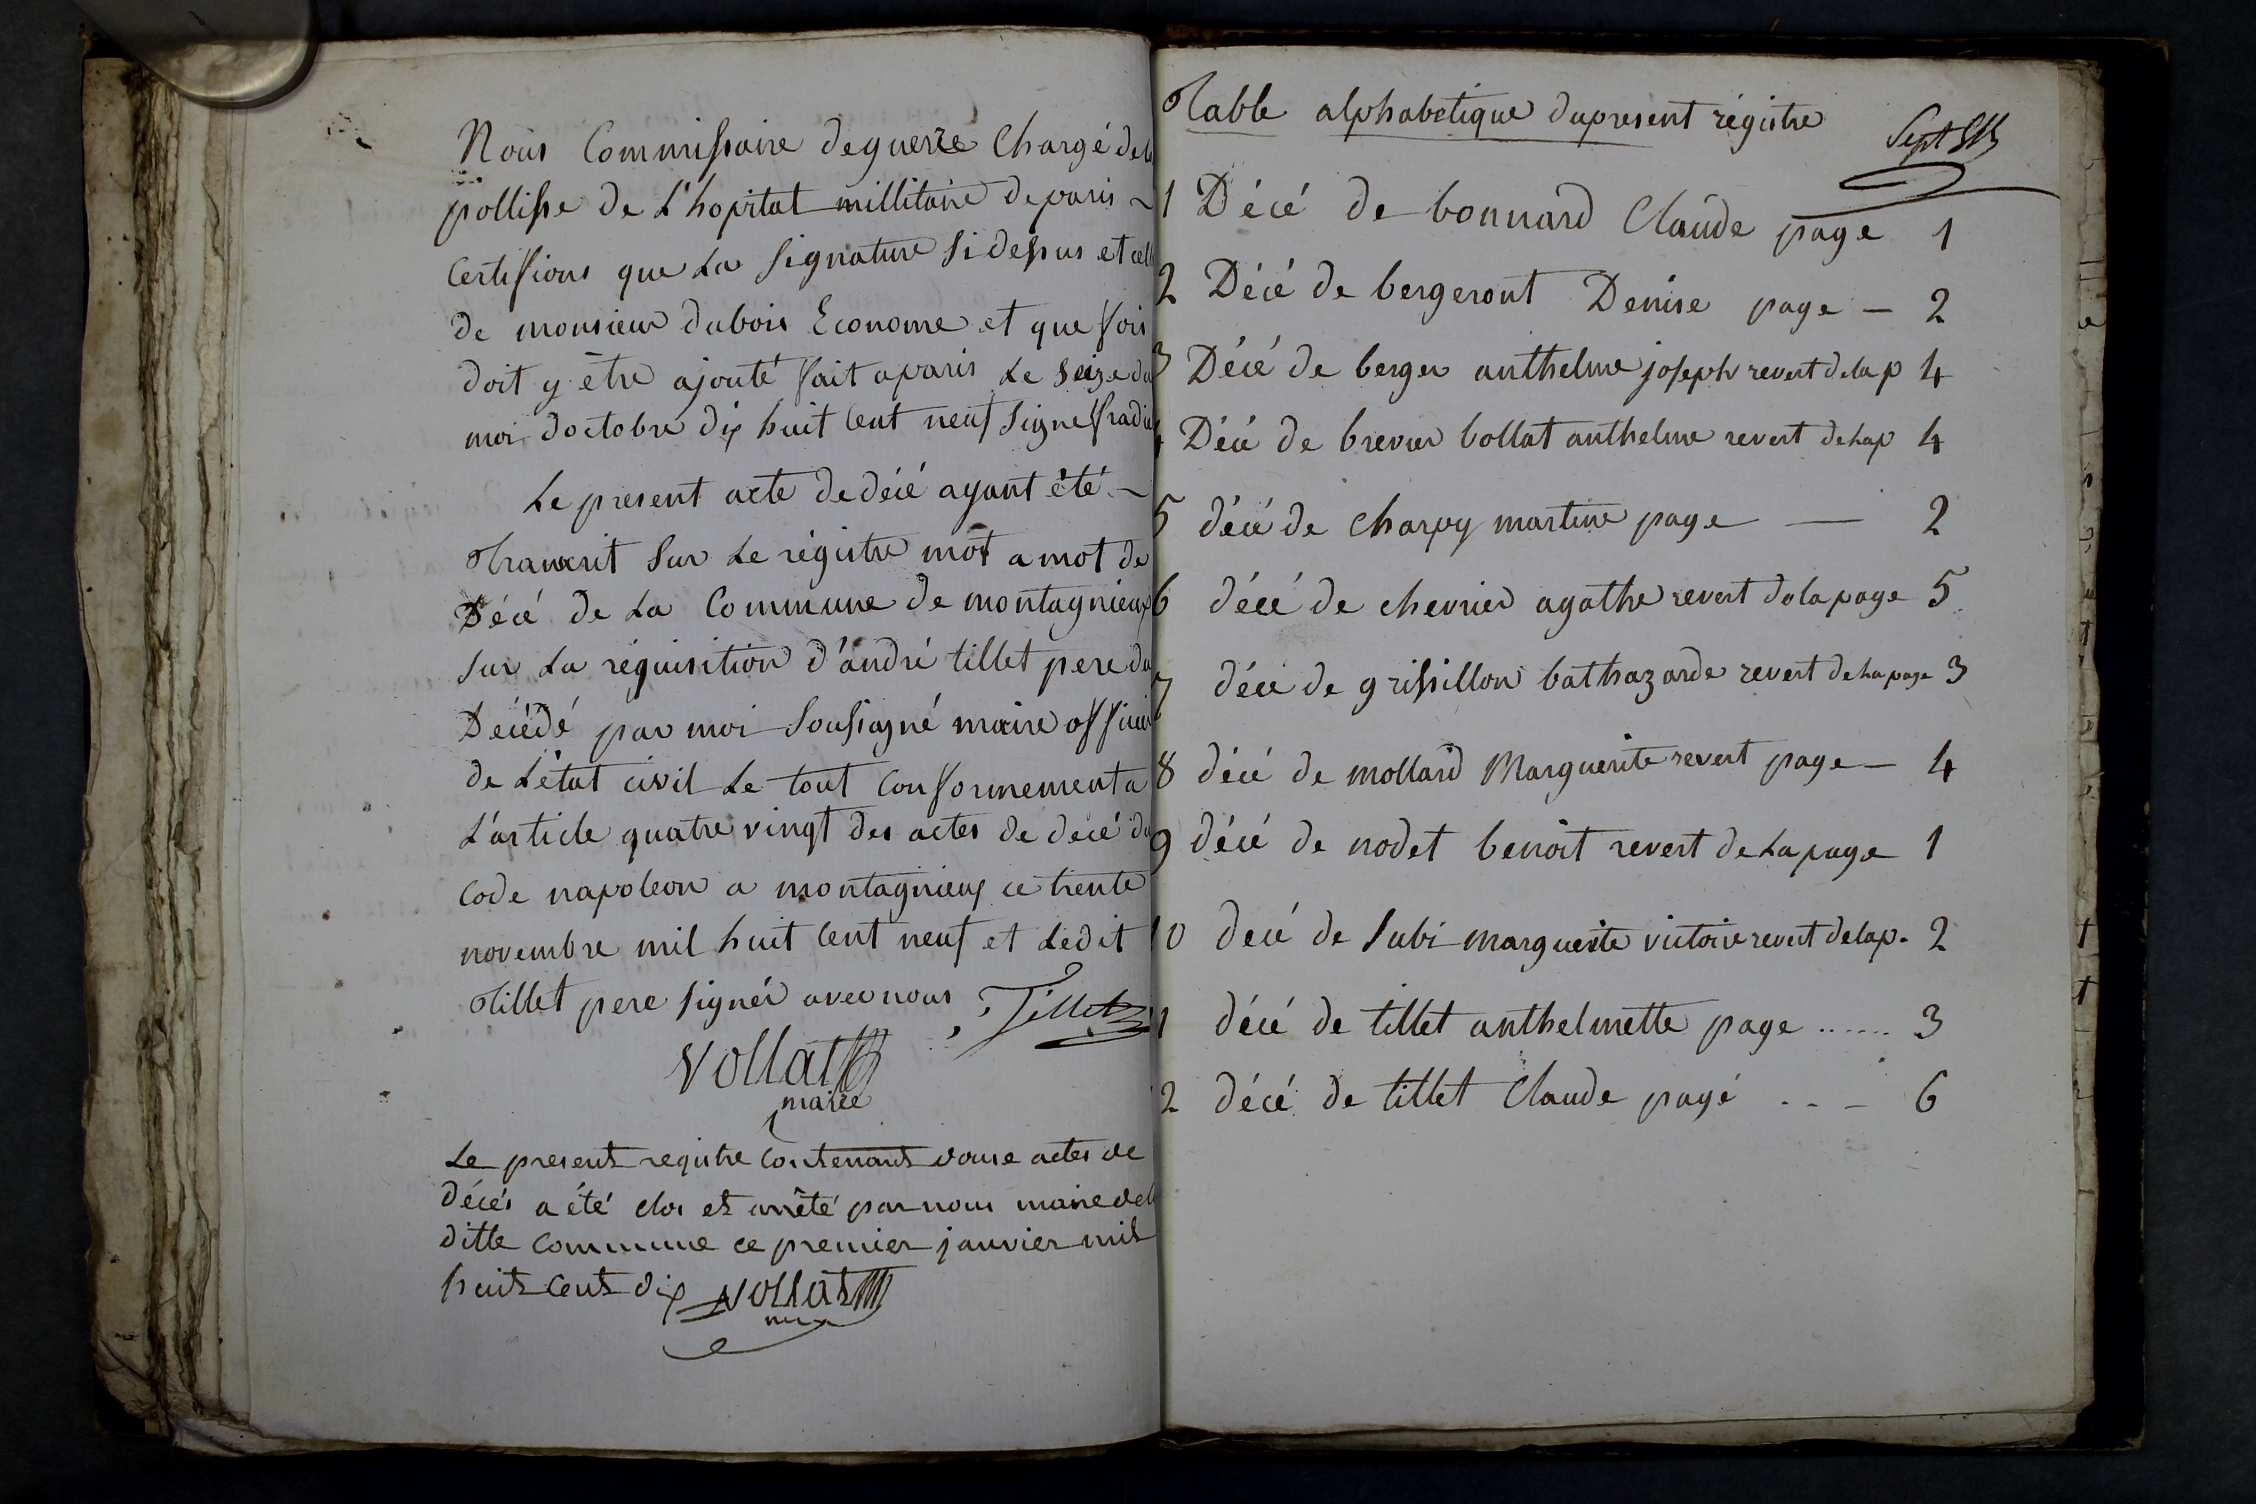 Nous Commissaire de guerre Chargé de la
pollisse de L'hopital millitaire de paris ~
Certifions que La signature si dessus et cell
de monsieur dubois Econome et que fois
doit y être ajouté fait a paris Le seize du
moi doctobre dix huit Cent neuf signé fradi
Le present acte de décé ayant été ~
Transcrit Sur Le régistre mot a mot de
Décé de La Commune de montagnieux
sur La réquisition d'andré tillet pere du
Décédé par moi Soussigné maire officier
de L'état civil Le tout Conformement a
L'article quatre vingt des actes de decé du
Code napoleon a montagnieux ce trente
novembre mil huit Cent neuf et Ledit
Tillet pere signér avec nous Tillet
Vollat
maire
Le present registre Contenant douse actes de
décés a été clos et arrêté par nous maire de la
ditte Commune ce premier janvier mil
huit Cent dix Vollat
Table alphabetique du present régistre
Sept
1 Décé de bonnard Claude page 1
2 Décé de bergeront Denise page — 2
3 Décé de berger anthelme joseph revert de la p 4
Décé de brevier bollat anthelme revert de La p 4
5 décé de Charpy martine page — 2
6 décé de chevrier agathe revert de la page 5
7 décé de grissillon bathazarde revert de La page 3
8 décé de mollard Marguerite revert page — 4
9 décé de nodet benoit revert de La page 1
10 decé de Subi marguerite victoire revert de la p. 2
1 décé de tillet anthelmette page ...... 3
2 décé de tillet Claude pagé . . – 6